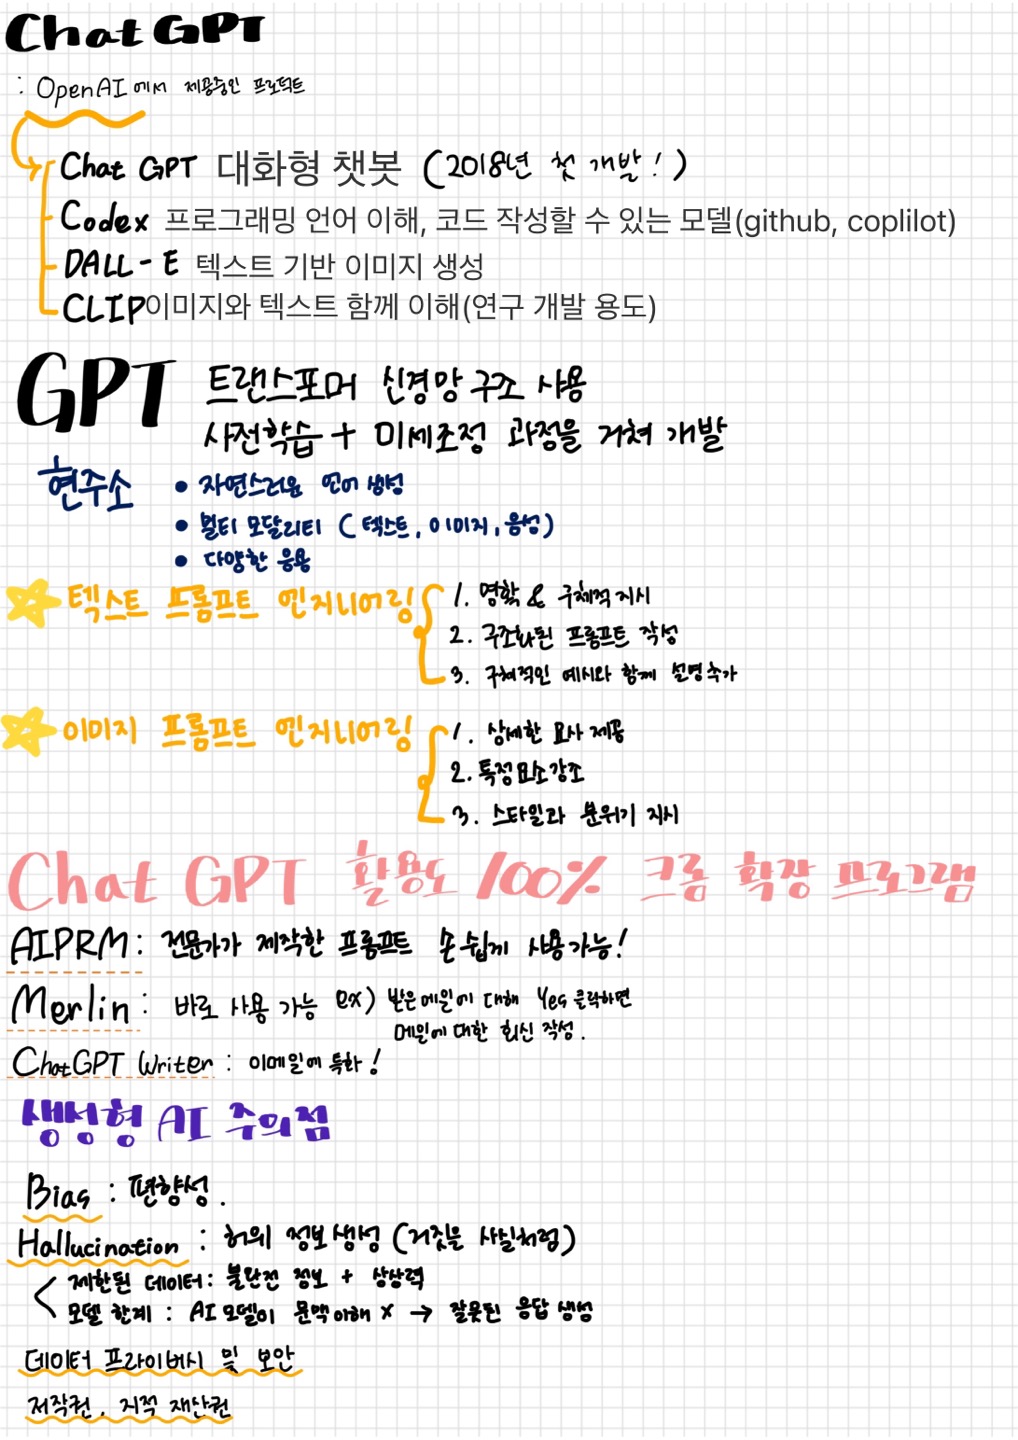 ChatGPT
: OpenAI에서 제공중인 프로덕트
Chat GPT 대화형 챗봇 (2018년 첫 개발!)
Codex 프로그래밍 언어 이해, 코드 작성할 수 있는 모델(github, coplilot)
DALL-E 텍스트 기반 이미지 생성
CLIP이미지와 텍스트 함께 이해(연구 개발 용도)
GPT 트랜스포머 신경망 구조 사용
사전학습 + 미세조정 과정을 거쳐 개발
현주소 • 자연스러운 언어 생성
• 멀티 모달리티 (텍스트, 이미지, 음성)
• 다양한 응용
텍스트 프롬프트 엔지니어링 1. 명확 & 구체적 지시
2. 구조화된 프롬프트 작성
3. 구체적인 예시와 함께 설명추가
이미지 프롬프트 엔지니어링 1. 상세한 묘사 제공
2. 특정요소강조
3. 스타일과 분위기 지시
Chat GPT 활용도 100% 크롬 확장 프로그램
AIPRM: 전문가가 제작한 프롬프트 손쉽게 사용가능!
Merlin: 바로 사용 가능 ex) 받은메일에 대해 Yes 클릭하면
메일에 대한 회신 작성.
ChatGPT Writer : 이메일에 특화!
생성형 AI 주의점
Bias : 편향성.
Hallucination : 허위 정보생성 (거짓을 사실처럼)
< 제한된 데이터: 불완전 정보 + 상상력
모델 한계 : AI 모델이 문맥이해 X → 잘못된 응답 생성
데이터 프라이버시 및 보안
저작권, 지적 재산권